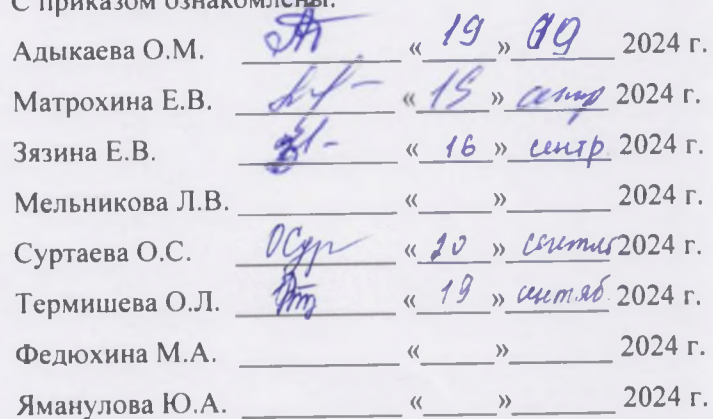 С приказом ознакомлены:
Адыкаева О.М. « 19 » 09 2024 г.
Матрохина Е.В. « » сентр 2024 г.
Зязина Е.В. « 16 » сентр 2024 г.
Мельникова Л.В. « » 2024 г.
Суртаева О.С. ОСур « 20 » 2024 г.
Термишева О.Л. « 19 » сентяб 2024 г.
Федюхина М.А. « » 2024 г.
Яманулова Ю.А. « » 2024 г.